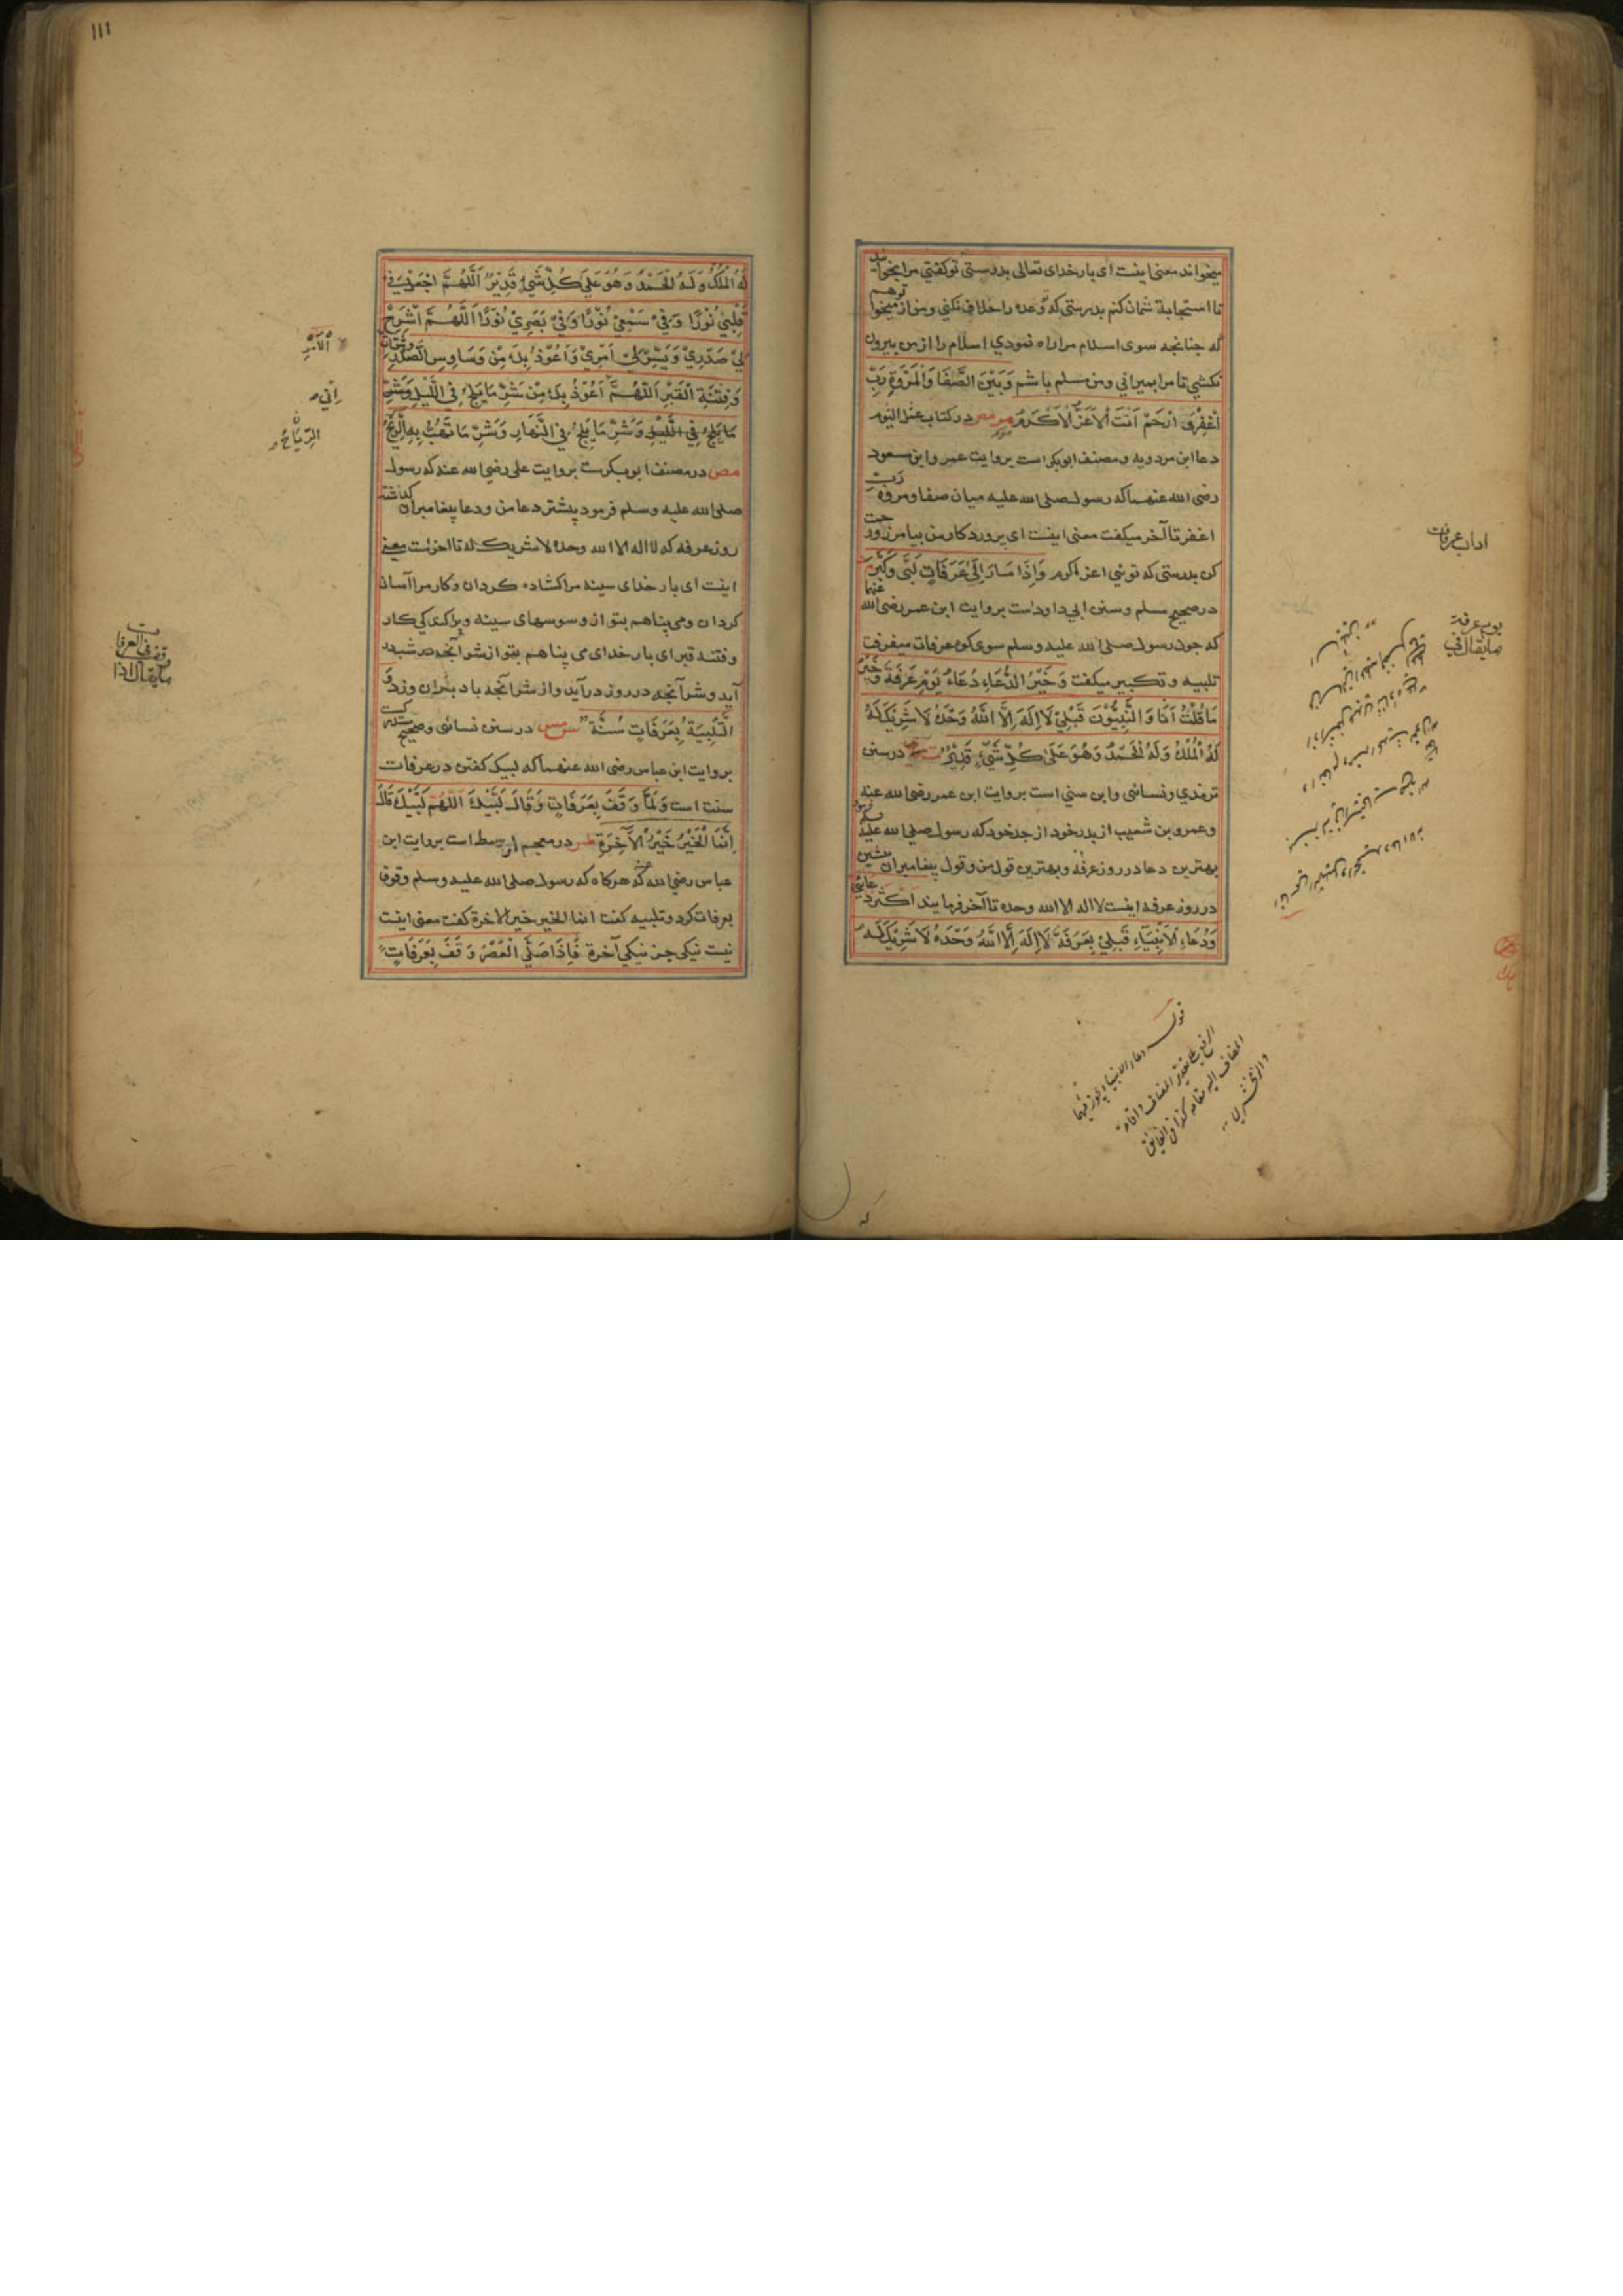 میخواند معنی اینست ای بار خدای تعالی بدرستی تو کفتی مرا بخوانید
تا استجابة شمان کنم بدرستی که تو وعده را خلاف نکنی و من از تو میخواهم
که چنانچه سوی اسلام مرا راه نمودي اسلام را از من بیرون
نکشي تا مرا بمیراني و من مسلم باشم وَبَيْنَ الصَّفَا وَالْمَرْوَةِ رَبِّ
اغْفِرْ وَ ارْحَمْ اَنْتَ الْاَعَزُّ الْاَكْرَمُ مو مص در کتاب عمل الیوم
دعا ابن مردویه و مصنف ابو بکر است بروایت عمر و ابن مسعود
رضی الله عنهما که رسول صلی الله علیه میان صفا و مروه رب
اغفر تا آخر میکفت معنی اینست ای پروردکار من بیامرز و رحمت
کن بدرستی که توئي اعز اکرم وَاِذَا سَارَ اِلَى عَرَفَاتٍ لَبَّى وَكَبَّرَ م
در صحیح مسلم و سنن ابي داود است بروایت ابن عمر رضی الله عنهما
که چون رسول صلی الله علیه وسلم سوی کوه عرفات میفرفت
تلبیه و تکبیر میکفت وَ خَيْرُ الدُّعَاءِ دُعَاءُ يَوْمِ عَرَفَةَ وَ خَيْرُ
مَا قُلْتُ اَنَا وَ النَّبِيُّوْنَ قَبْلِيْ لَا اِلَهَ اِلَّا اللّٰهُ وَحْدَهُ لَا شَرِيْكَ لَهُ
لَهُ الْمُلْكُ وَلَهُ الْحَمْدُ وَهُوَ عَلَى كُلِّ شَيْءٍ قَدِيْرٌ ت در سنن
ترمذي و نسائی و ابن سني است بروایت ابن عمر رضی الله عنه
و عمرو بن شعیب از پدر خود از جد خود که رسول صلی الله علیه وسلم فرمود
بهترین دعا در روز عرفه و بهترین قول من و قول پیغامبران پیشین
در روز عرفه اینست لا اله الا الله وحده تا آخر فرمایند اَكْثَرُ دُعَائِي
وَدُعَاءِ الْاَنْبِيَاءِ قَبْلِيْ بِعَرَفَةَ لَا اِلَهَ اِلَّا اللّٰهُ وَحْدَهُ لَا شَرِيْكَ لَهُ
اداب عرفات
مايقال في
يوم عرفة
قوله دعاء الانبياء ويجوز فيهما
الرفع على تقدير المضاف واقامة
المضاف اليه مقامه كذا في الفائق
والزمخشري
١١١
لَهُ الْمُلْكُ وَلَهُ الْحَمْدُ وَهُوَ عَلَى كُلِّ شَيْءٍ قَدِيْرٌ اَللّٰهُمَّ اجْعَلْ فِي
قَلْبِيْ نُوْرًا وَ فِيْ سَمْعِيْ نُوْرًا وَ فِيْ بَصَرِيْ نُوْرًا اَللّٰهُمَّ اشْرَحْ
لِيْ صَدْرِيْ وَ يَسِّرْ لِيْ اَمْرِيْ وَ اَعُوْذُ بِكَ مِنْ وَسَاوِسِ الصَّدْرِ وَ شَتَاتِ
وَ فِتْنَةِ الْقَبْرِ اَللّٰهُمَّ اَعُوْذُ بِكَ مِنْ شَرِّ مَا يَلِجُ فِي اللَّيْلِ وَ شَرِّ
مَا يَلِجُ فِي اللَّيْلِ وَ شَرِّ مَا يَلِجُ فِي النَّهَارِ وَ شَرِّ مَا تَهُبُّ بِهِ الرِّيْحُ
مص در مصنف ابو بکرست بروایت علی رضی الله عنه که رسول
صلی الله علیه وسلم فرمود پیشتر دعا من و دعا پیغامبران کذشته
روز عرفه که لا اله الا الله وحده لا شریک له تا اخر است معنی
اینست ای بار خدای سینه مرا کشاده کردان و کار مرا آسان
کردان و می پناهم بتو از وسوسهای سینه و پراکندکي کار
و فتنه قبر ای بار خدای می پناهم بتو از شر آنچه در شب در
آید و شر آنچه در روز در آید و از شر آنچه باد بران وزد وَ
التَّلْبِيَةُ بِعَرَفَاتٍ سُنَّةٌ س مس در سنن نسائی و صحیح مستدرکست
بروایت ابن عباس رضی الله عنهما که لبیک کفتن در عرفات
سنت است وَ لَمَّا وَقَفَ بِعَرَفَاتٍ وَ قَالَ لَبَّيْكَ اَللّٰهُمَّ لَبَّيْكَ قَالَ
اِنَّمَا الْخَيْرُ خَيْرُ الْآخِرَةِ طس در معجم اوسط است بروایت ابن
عباس رضی الله عنه که هرکاه که رسول صلی الله علیه وسلم وقوف
بعرفات کرد و تلبیه کفت انما الخیر خیر الاخرة کفت معنی اینست
نیست نیکی جز نیکی آخرة فَاِذَا صَلَّى الْعَصْرَ وَ قَفَ بِعَرَفَاتٍ
الْاَمْرِ
اِنِّي
الرِّيَاحُ
مايقال اذا
وقف في العرفات